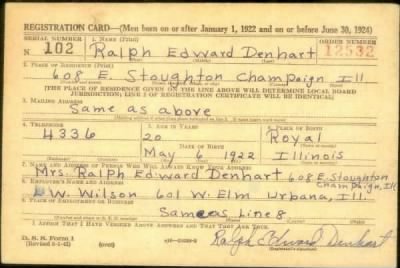 REGISTRATION CARD—(Men born on or after January 1, 1922 and on or before June 30, 1924)
SERIAL NUMBER 1. NAME (Print) ORDER NUMBER
N 102 Ralph Edward Denhart 12532
2. PLACE OF RESIDENCE (Print)
608 E. Stoughton Champaign Ill
[THE PLACE OF RESIDENCE GIVEN ON THE LINE ABOVE WILL DETERMINE LOCAL BOARD
JURISDICTION; LINE 2 OF REGISTRATION CERTIFICATE WILL BE IDENTICAL]
3. MAILING ADDRESS
Same as above
4. TELEPHONE 5. AGE IN YEARS 6. PLACE OF BIRTH
4336 20 Royal
May 6 1922 Illinois
7. NAME AND ADDRESS OF PERSON WHO WILL ALWAYS KNOW YOUR ADDRESS
Mrs. Ralph Edward Denhart 608 E. Stoughton
Champaign, Ill
8. EMPLOYER'S NAME AND ADDRESS
W. Wilson 601 W. Elm Urbana, Ill.
Same as Line 8
I AFFIRM THAT I HAVE VERIFIED ABOVE ANSWERS AND THAT THEY ARE TRUE.
D. S. S. Form 1
Ralph Edward Denhart